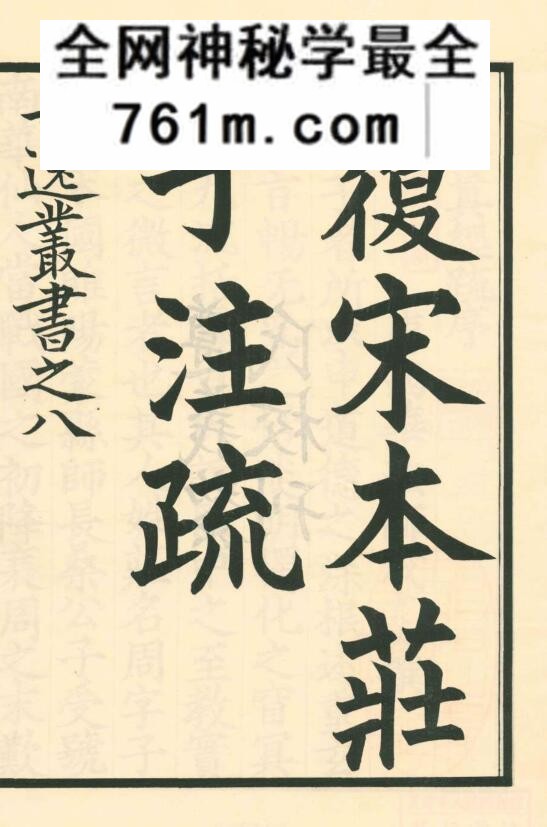 全网神秘学最全
761m.com
復宋本莊
子注疏
逸叢書之八